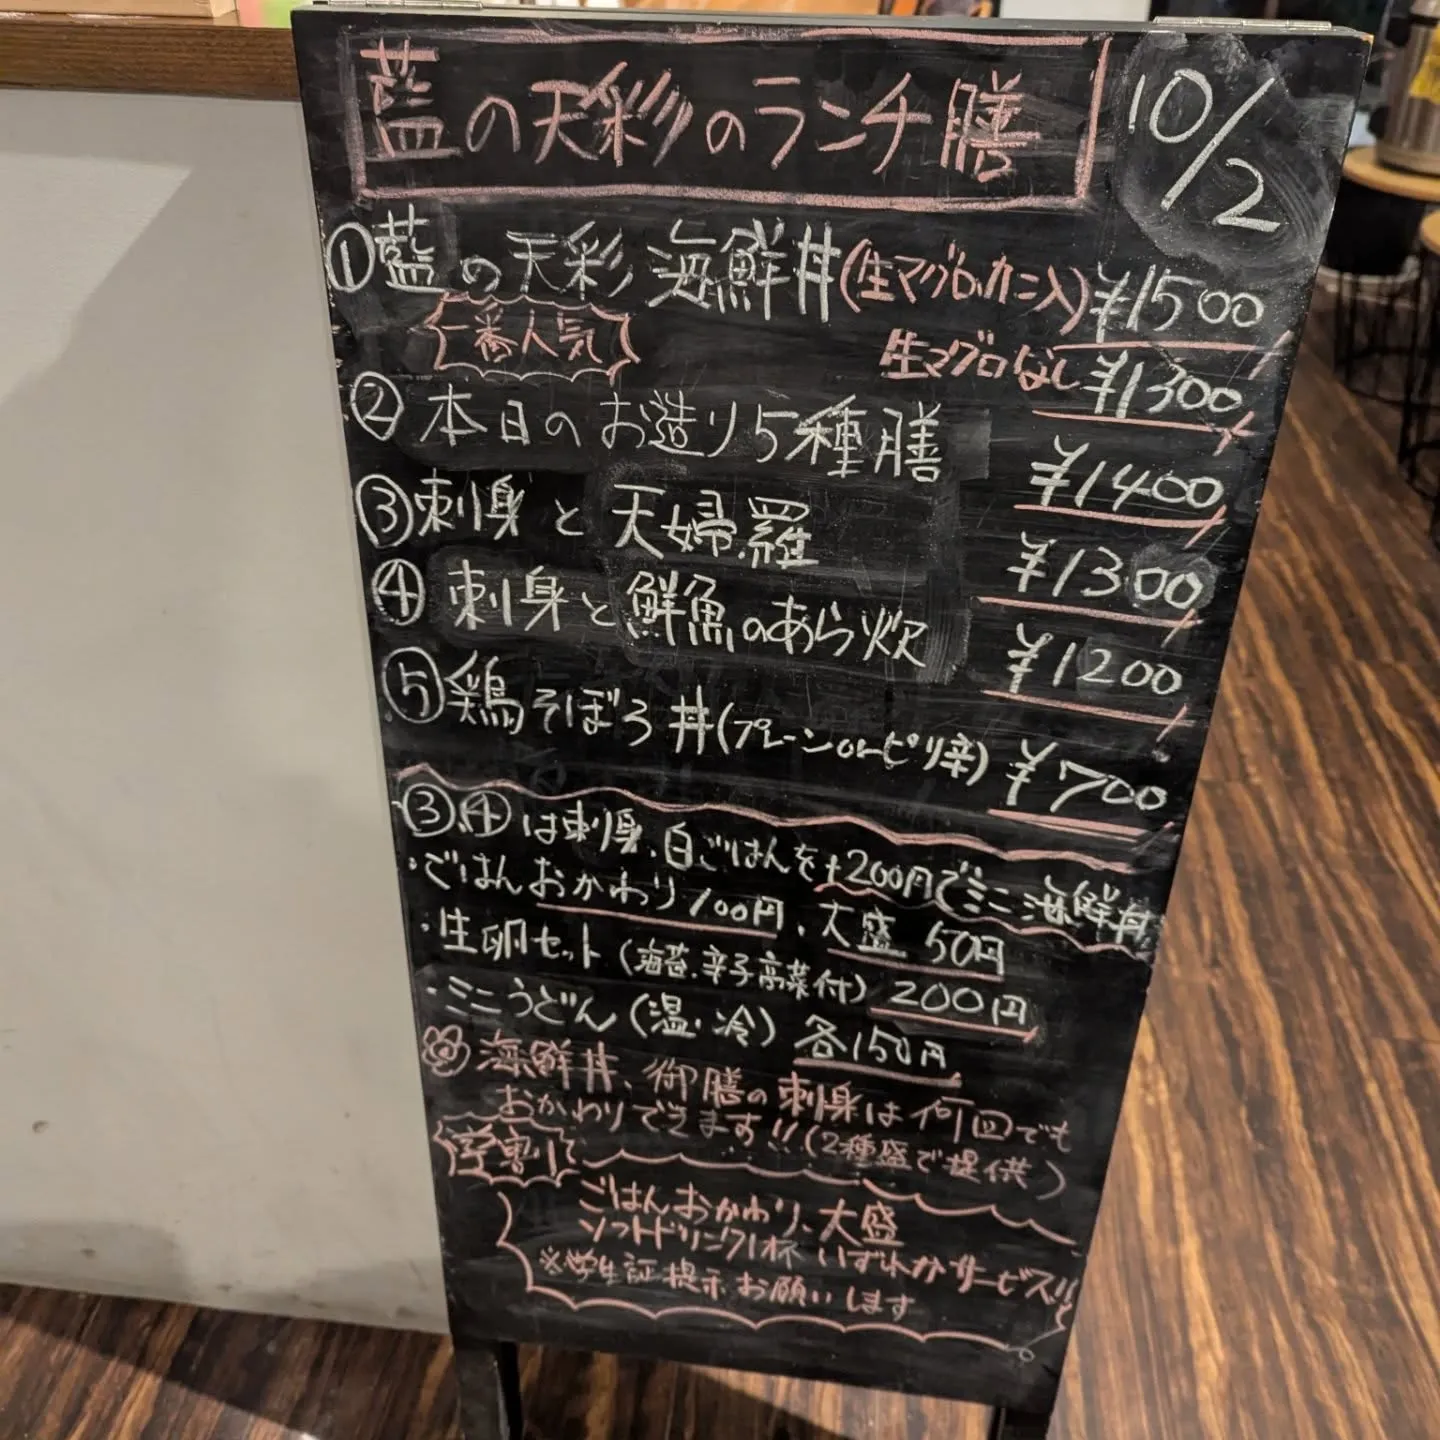 藍の天彩のランチ膳
10/2
①藍の天彩 海鮮丼(生マグロ、カニ入) ¥1500
一番人気
生マグロなし ¥1300
②本日のお造り5種膳 ¥1400
③刺身と天婦羅 ¥1300
④刺身と鮮魚のあら炊 ¥1200
⑤鶏そぼろ丼(プレーンorピリ辛) ¥700
③.④は刺身、白ごはんを+200円でミニ海鮮丼
・ごはんおかわり100円、大盛 50円
・生卵セット(海苔、辛子高菜付) 200円
・ミニうどん(温・冷) 各150円
海鮮丼、御膳の刺身は何回でも
おかわりできます!!(2種盛で提供)
学割!
ごはんおかわり、大盛
ソフトドリンク1杯 いずれかサービス!!
※学生証提示お願いします